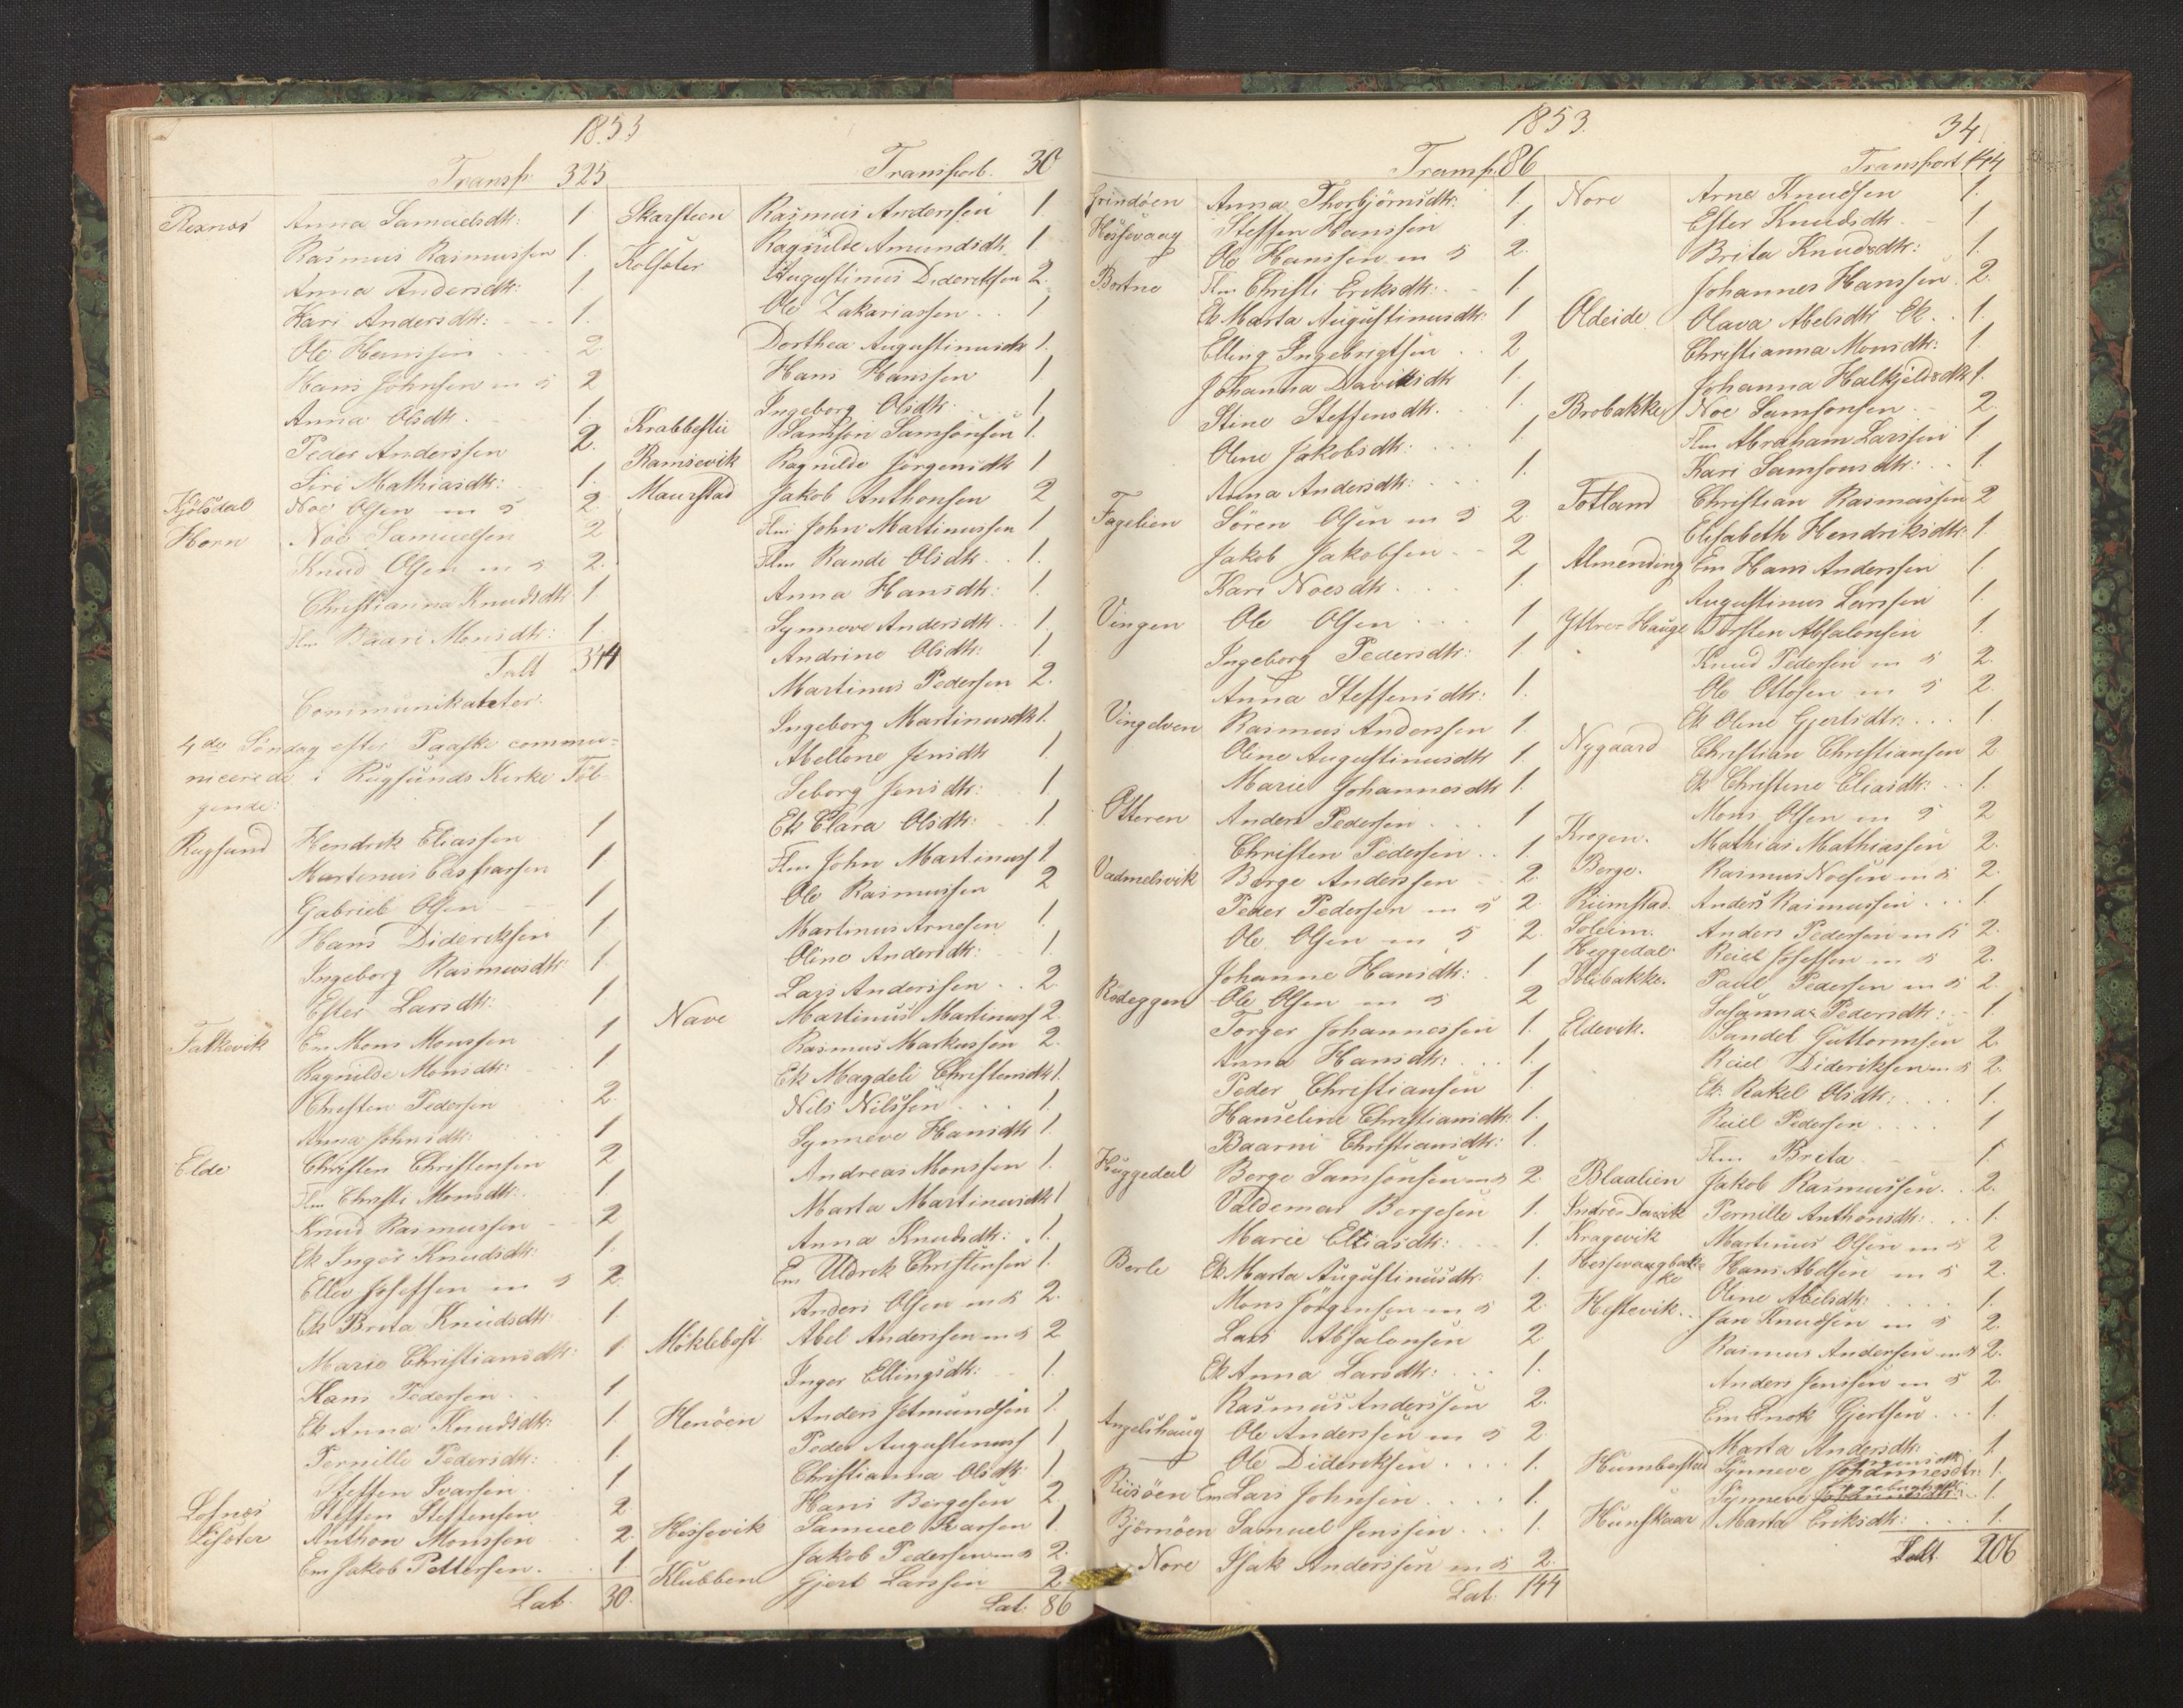 1853
Transp. 325
Rexnæs Anna Samuelsdtr: 1
Rasmus Rasmussen 1.
Anna Andersdtr: 1
Kari Andersdtr: 1.
Ole Hanssen 2
Hans Johnsen m 2
Anna Olsdtr. 1.
Peder Anderssen 2.
Siri Mathiasdtr: 1.
Kjölsdal Noe Olsen m 2
Horn Noe Samuelsen 2
Knud Olsen m 2.
Christianna Knudsdtr 1
Flm Baari Monsdtr: 1.
Talt 344
Communikanter.
4de Söndag efter Paaske commu=
nicerede i Rugsunds Kirke Föl-
gende:
Rugsund Hendrik Eliassen 1
Martinus Casparsen 1
Gabriel Olsen 1
Hans Dideriksen 1.
Ingeborg Rasmusdtr 1.
Ester Larsdtr: 1.
Falkevik Em Mons Monssen 1
Ragnilde Monsdtr: 1
Christen Pedersen 2.
Anna Johnsdtr: 1
Elde Christen Christensen 2
Flm Christi Monsdtr: 1
Knud Rasmussen 2
Ek Inger Knudsdtr: 1.
Ellev Josefsen m 2.
Ek Brita Knudsdtr 1.
Marie Christiansdtr: 1
Hans Pedersen 1
Ek Anna Knudsdtr: 1.
Pernille Pedersdtr: 1.
Steffen Ivarsen 1
Lofnæs Steffen Steffensen 2
Lisæter Anthon Monssen 2.
Em Jakob Pettersen. 1
Lat. 30.
Transport. 30
Skarsteen Rasmus Anderssen 1.
Kolsæter Ragnilde Amundsdtr 1
Augustinus Dideriksen 2.
Ole Zakariassen 1
Dorthea Augustinusdtr 1.
Hans Hanssen 1.
Ingeborg Olsdtr. 1
Krabbestie Samson Samsonsen 1.
Ramsevik Ragnilde Jörgensdtr 1
Maurstad Jakob Anthonsen 2
Flm John Martinussen 1
Flm Rande Olsdtr 1.
Anna Hansdtr: 1.
Synneve Andersdtr. 1.
Andrine Olsdtr: 1.
Martinus Pedersen 2.
Ingeborg Martinusdtr 1.
Abellone Jensdtr 1.
Seborg Jensdtr: 1.
Ek Clara Olsdtr: 1.
Flm John Martinuss 1
Ole Rasmussen 2
Martinus Arnesen 1.
Oline Andersdtr: 1.
Lars Anderssen 2.
Nave Martinus Martinuss 2.
Rasmus Markussen 2.
Ek Magdeli Christensdtr 1.
Nils Nilssen 1.
Synneve Hansdtr 1.
Andreas Monssen 1.
Marta Martinusdtr 1
Anna Knudsdtr: 1.
Em Uldrik Christensen 1.
Anders Olsen m 2.
Möklebost Abel Anderssen m 2
Inger Ellingsdtr: 1.
Henöen Anders Jetmundsen 1.
Peder Augustinuss 1
Christianna Olsdtr 1
Hans Börgesen 2.
Hessevik Samuel Ivarsen 1.
Jakob Pedersen m 2.
Klubben Gjert Larssen 2
Lat: 86
1853. 34
Transp. 86
Grindöen Anna Thorbjörnsdtr: 1.
Hessevaag Steffen Hanssen 1.
Ole Hanssen m 2.
Bortne Flm Christi Eriksdtr: 1.
Ek Marta Augustinusdtr: 1
Elling Ingebrigtsen 2
Johanna Daviksdtr 1.
Stine Steffensdtr. 1.
Oline Jakobsdtr: 1.
Anna Andersdtr: 1.
Fagelien Sören Olsen m 2.
Jakob Jakobsen 2
Kari Noesdtr 1.
Vingen Ole Olsen 1
Ingeborg Pedersdtr: 1
Anna Steffensdtr: 1.
Vingelven Rasmus Anderssen 1.
Oline Augustinusdtr 1
Marie Johannesdtr 1.
Otteren Anders Pedersen 1
Christen Pedersen 1.
Vadmelsvik Börge Anderssen 2.
Peder Pedersen m 2.
Ole Olsen m 2.
Johanne Hansdtr: 1
Rödeggen Ole Olsen m 2
Torger Johannessen 1.
Anna Hansdtr: 1.
Peder Christiansen 1.
Hanseline Christiansdtr: 1.
Baarni Christiansdtr: 1.
Hyggedal Börge Samsonsen m 2.
Valdemar Börgesen 1.
Marie Eliasdtr: 1.
Berle Ek Marta Augustinusdtr 1.
Mons Jörgensen m 2.
Lars Absalonsen 2
Ek Anna Larsdtr: 1.
Rasmus Anderssen 2.
Angelshaug Ole Anderssen m 2
Ole Dideriksen 1.
Risöen Em Lars Johnsen 1.
Björnöen Samuel Jenssen 1.
Nore Isak Anderssen m 2.
Lat. 144
Transport 144
Nore Arne Knudsen 1.
Ester Knudsdtr. 1
Brita Knudsdtr: 1.
Johannes Hanssen 2.
Oldeide Olava Abelsdtr Ek. 1.
Christianna Monsdtr: 1
Johanna Halkjeldsdtr 1.
Brobakke Noe Samsonsen 2.
Flm Abraham Larssen 1.
Kari Samsonsdtr: 1.
Totland Christian Rasmussen 2
Elisabeth Hendriksdtr: 1.
Almending Em Hans Anderssen 1.
Augustinus Larssen 1.
Yttre=Hauge Torsten Absalonsen 1.
Knud Pedersen m 2.
Ole Ottosen m 2.
Ek Oline Gjertsdtr: 1.
Nygaard Christian Christiansen 2.
Ek Christine Eliasdtr: 1.
Mons Olsen m 2
Krogen. Mathias Mathiassen 2.
Berge. Rasmus Noesen m 2.
Rimstad. Anders Rasmussen 1.
Soleim. Anders Pedersen m 2.
Heggedal Reiel Josefsen m 2.
Islibakke. Paul Pedersen m 2.
Susanna Pedersdtr: 1.
Eldevik. Sandel Guttormsen 2.
Reiel Dideriksen m 2.
Ek. Rakel Olsdtr: 1.
Reiel Pedersen 1
Flm Brita 1
Blaalien Jakob Rasmussen. 2.
Indre=Davik Pernille Anthonsdtr: 1.
Kragevik Martinus Olsen m 2
Hessevaagbak=
ke Hans Abelsen m 2.
Oline Abelsdtr: 1.
Hestevik. Jan Knudsen m 2.
Rasmus Andersen m 2.
Anders Jenssen m 2.
Em Enok Gjertsen 1.
Marta Andersdtr: 1
Humborstad Synneve Johannesdtr: 1.
Synneve 1.
Hunskaar Marta Eriksdtr: 1.
Talt 206